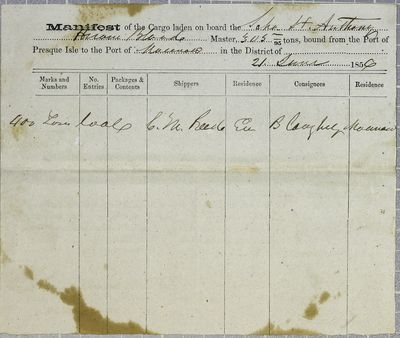 Manifest of the Cargo laden on board the Schr St. Anthony
Hiram Master, 303 /95 tons, bound from the Port of
Presque Isle to the Port of in the District of
21 June 1856
Marks and Numbers No. Entries Packages & Contents Shippers Residence Consignees Residence
400 Tons Coal C. M. Reed Erie B Caughey